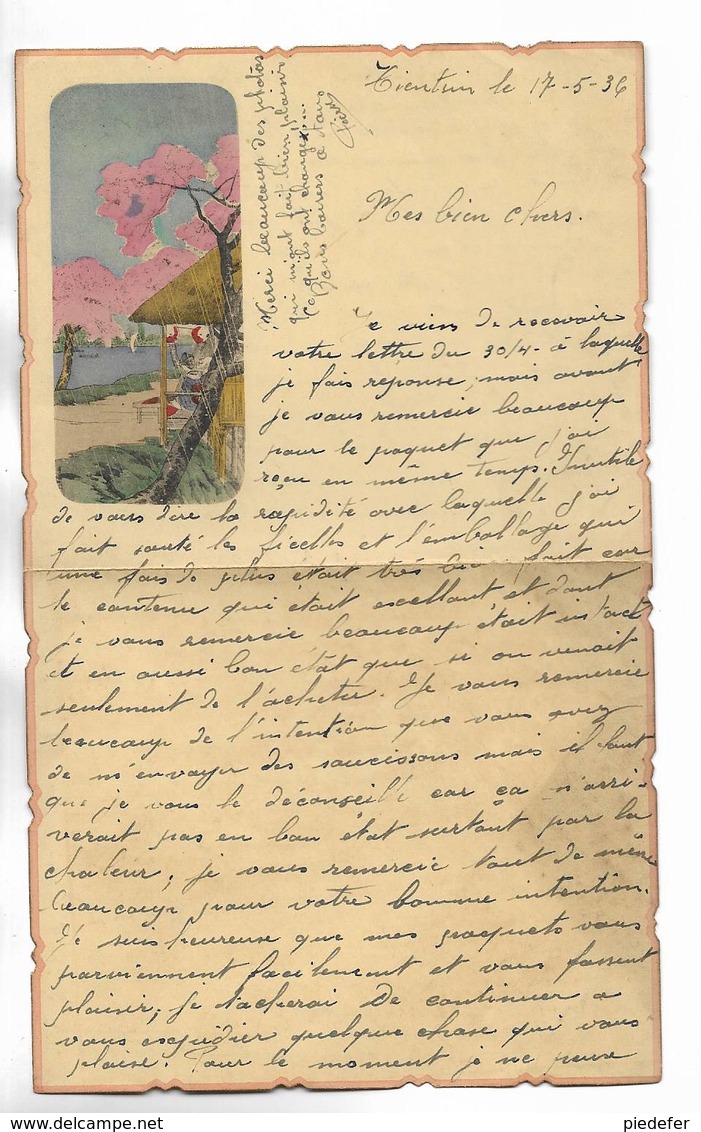 Tientsin le 17-5-36
Mes bien chers.
Merci beaucoup des photos
qui m'ont fait bien plaisir
ce qu'ils ont changé...
Bons baisers à tous
Je viens de recevoir
votre lettre du 30/4 - à laquelle
je fais réponse, mais avant
je vous remercie beaucoup
pour le paquet que j'ai
reçu en même temps. Inutile
de vous dire la rapidité avec laquelle j'ai
fait sauté les ficelles et l'emballage qui
une fois de plus était très bien fait car
le contenu qui était excellent et dont
je vous remercie beaucoup était intact
et en aussi bon état que si on venait
seulement de l'acheter. Je vous remercie
beaucoup de l'intention que vous avez
de m'envoyer des saucissons mais il faut
que je vous le déconseille car ça n'arri-
verait pas en bon état surtout par la
chaleur; je vous remercie tout de même
beaucoup pour votre bonne intention.
Je suis heureuse que mes paquets vous
parviennent facilement et vous fassent
plaisir, je tacherai de continuer a
vous expédier quelque chose qui vous
plaise. Pour le moment je ne pense
piedefer